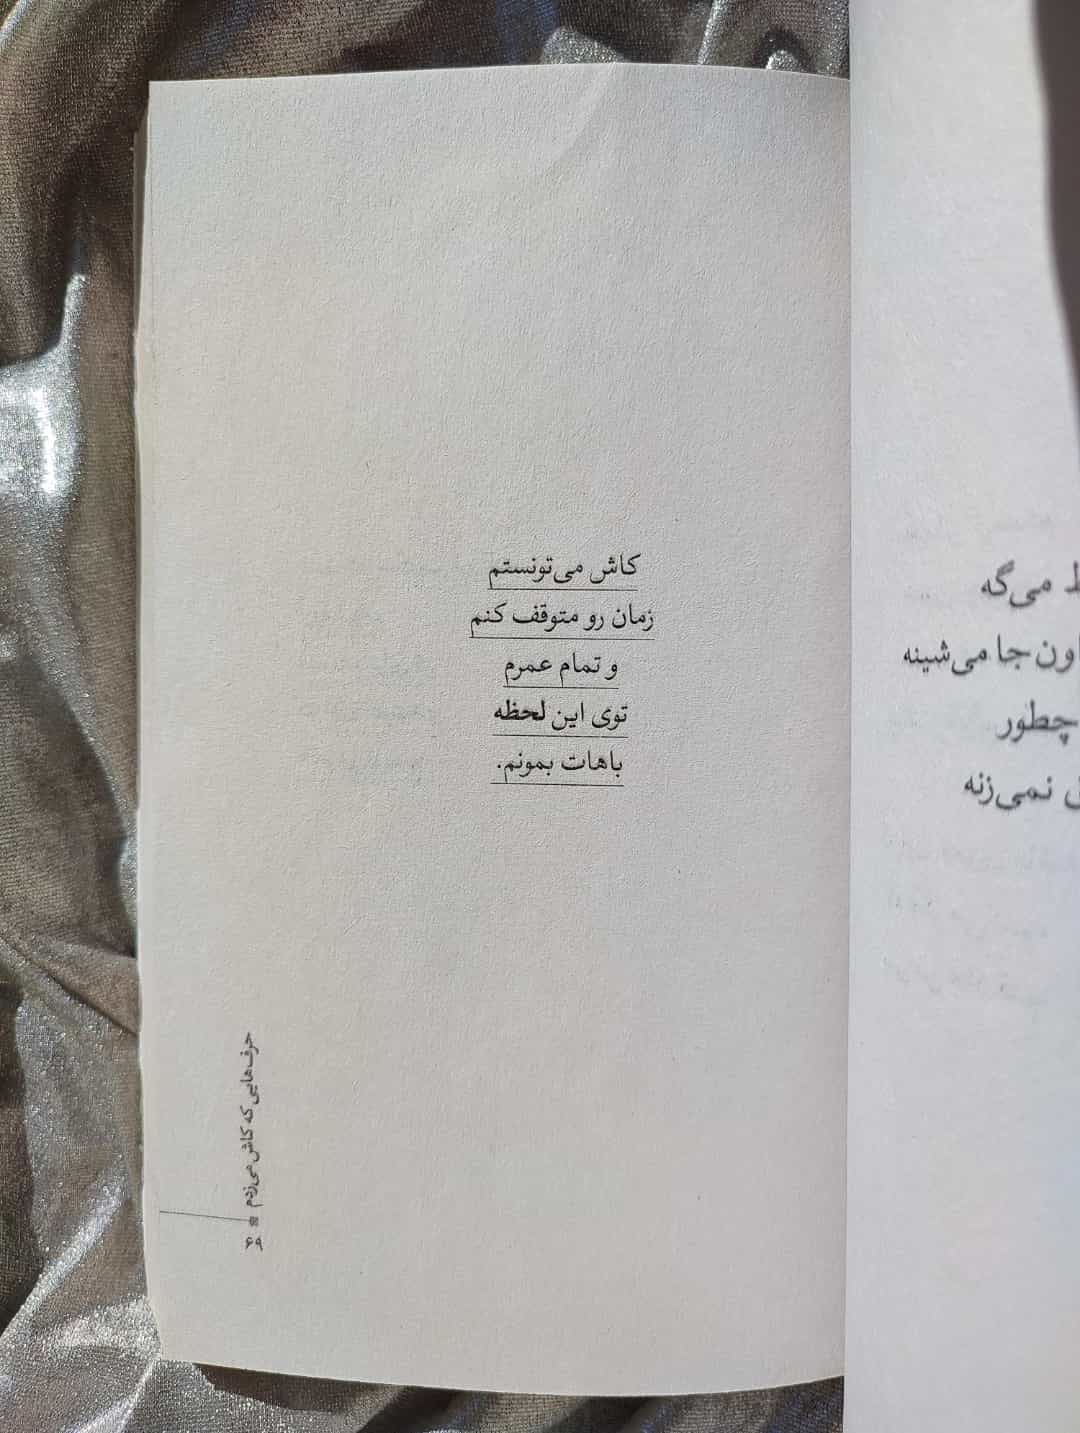 کاش می‌تونستم
زمان رو متوقف کنم
و تمام عمرم
توی این لحظه
باهات بمونم.
حرف‌هایی که کاش می‌زدم
۶۹
می‌گه
اون جا می‌شینه
چطور
نمی‌زنه